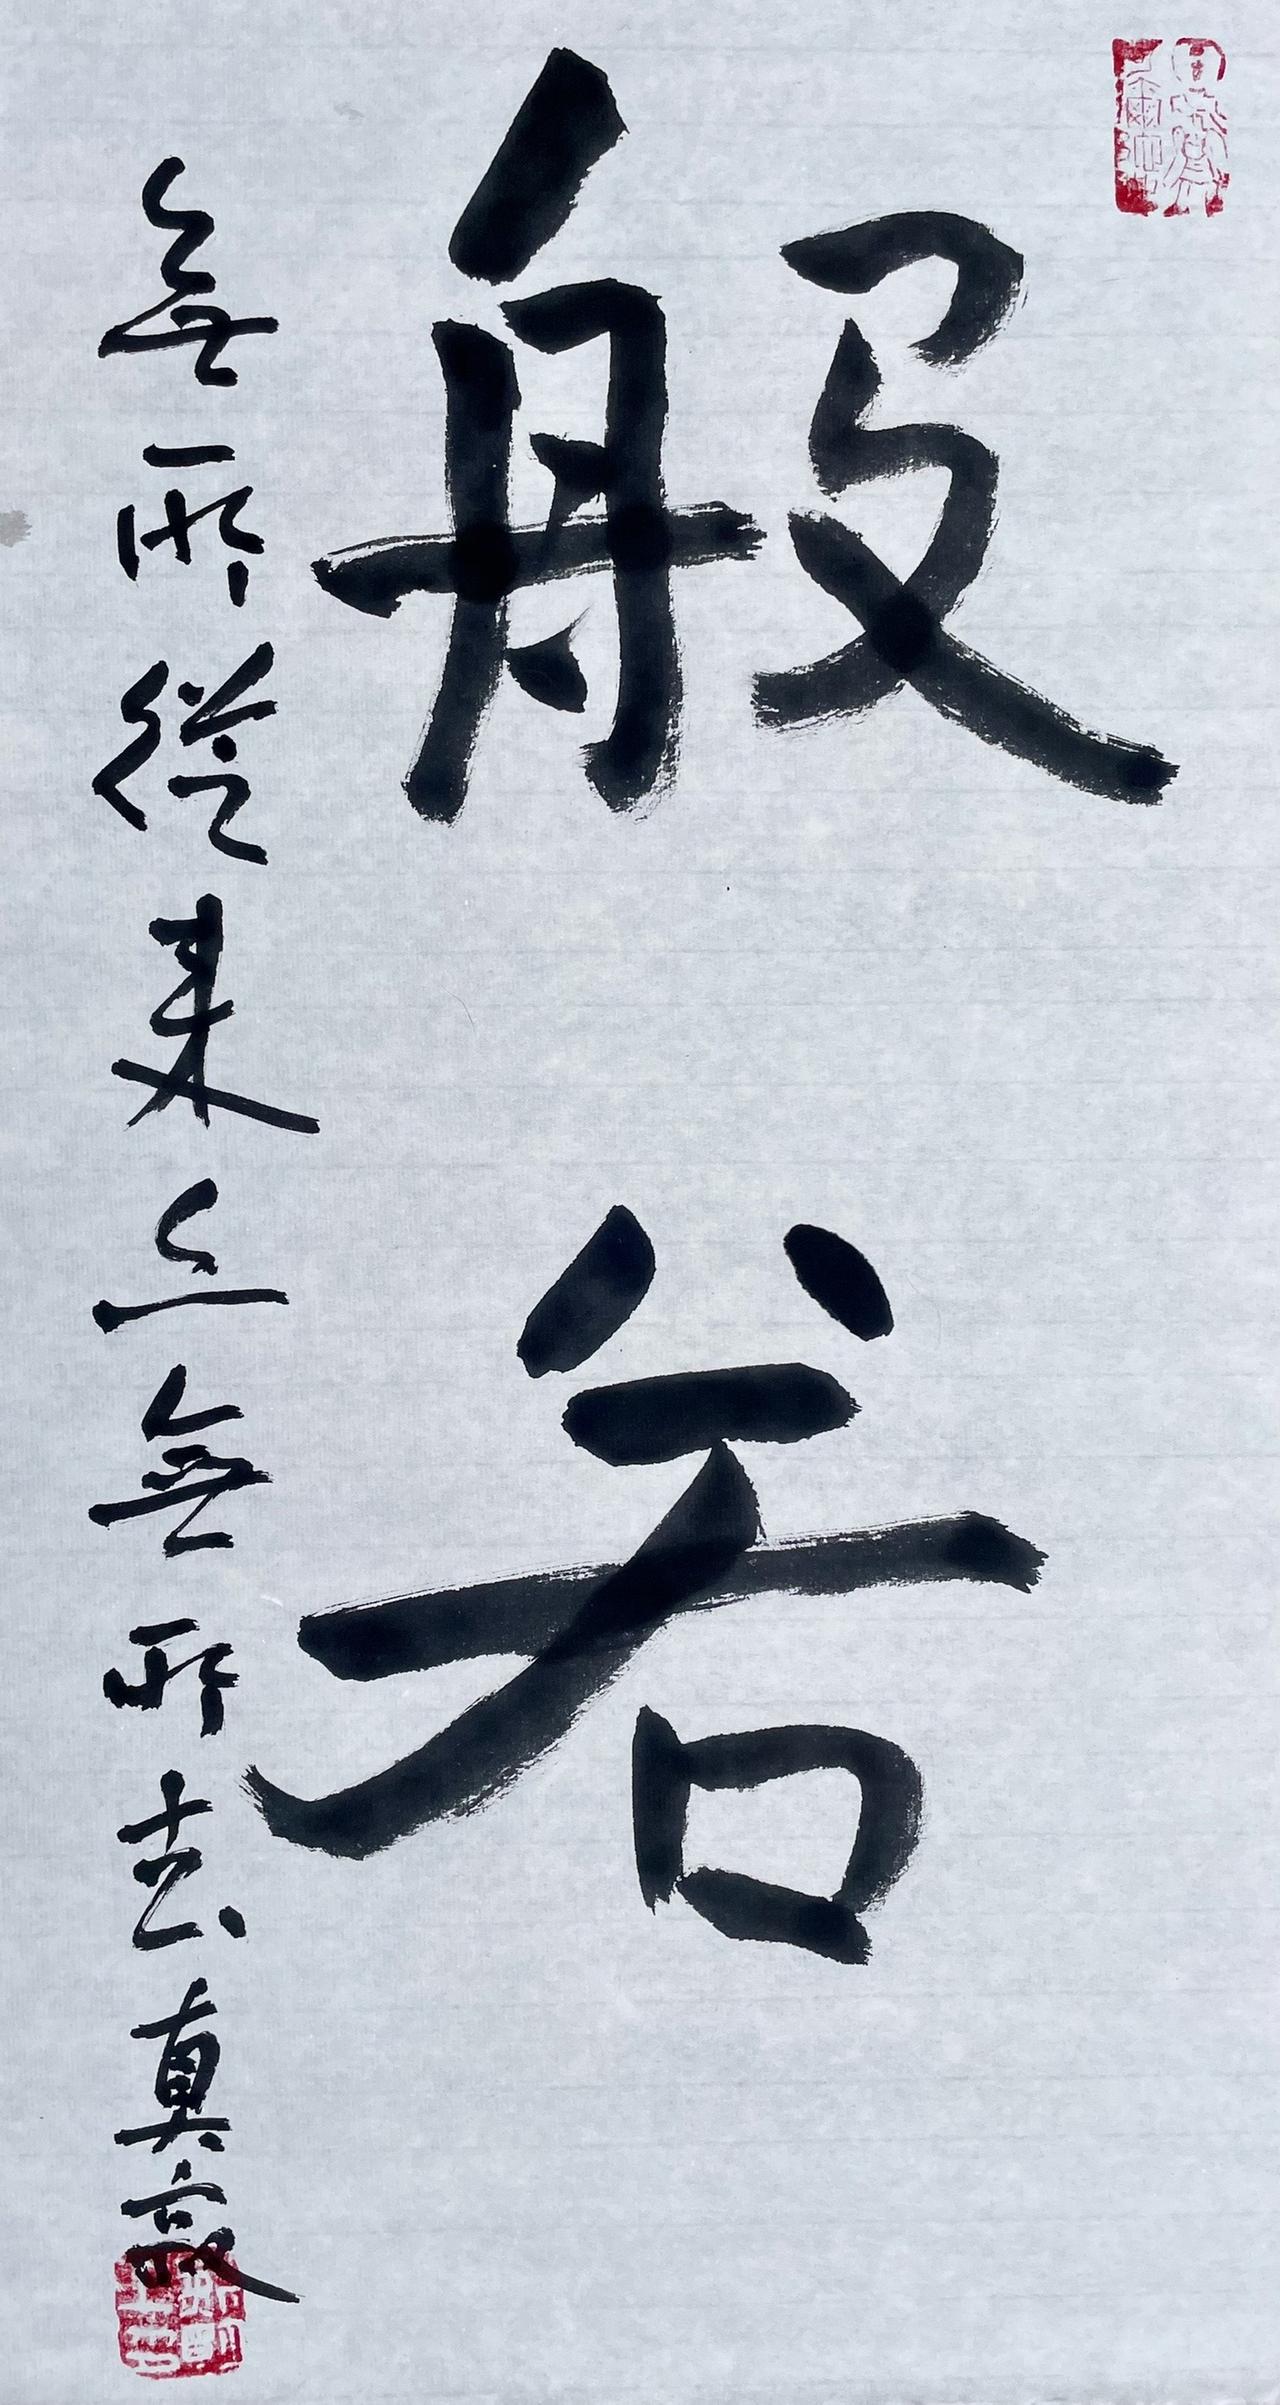 般若
無所從来亦無所去真